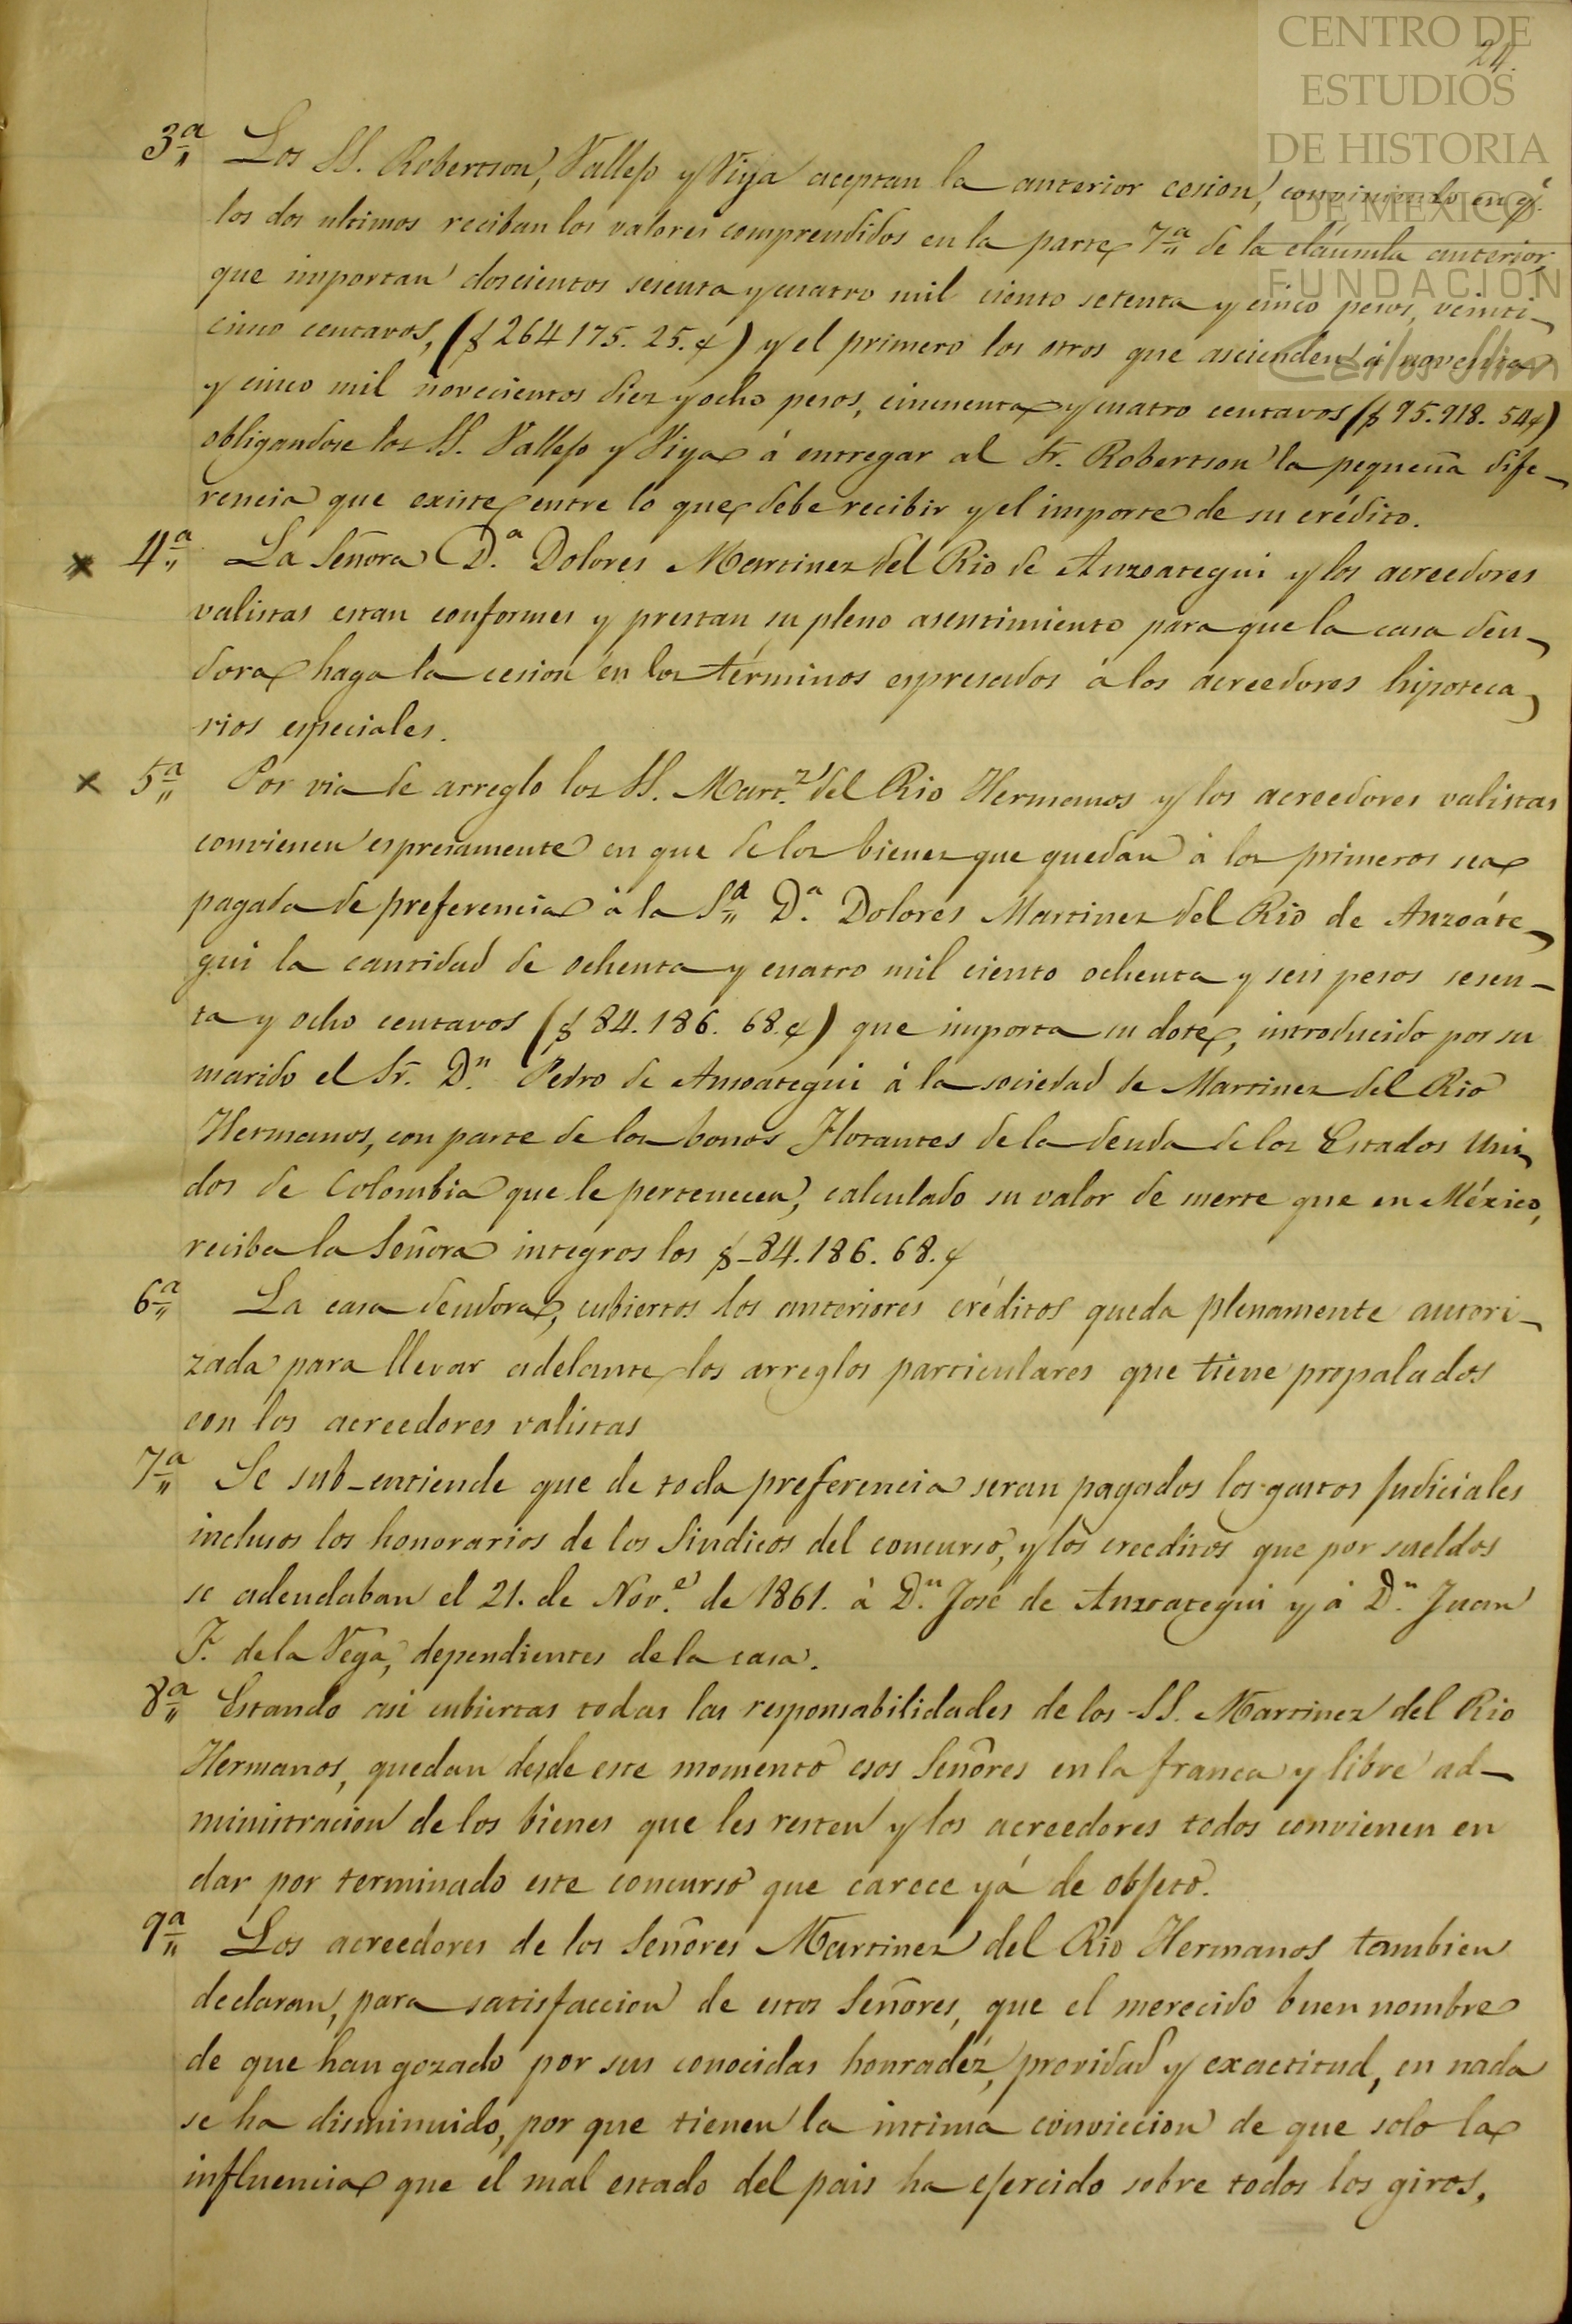 CENTRO DE
ESTUDIOS
DE HISTORIA
DE MÉXICO
FUNDACIÓN
Carlos Slim
24.
3ª Los SS. Robertson, Vallejo y Viya aceptan la anterior cesion, conviniendo en q.̃
los dos ultimos reciban los valores comprendidos en la parte 7ª de la cláusula anterior,
que importan doscientos sesenta y cuatro mil ciento setenta y cinco pesos, veinti-
cinco centavos, ($264175. 25.¢) y el primero los otros que ascienden á noventa
y cinco mil novecientos diez y ocho pesos, cincuenta y cuatro centavos ($95.918. 54¢)
obligandose los SS. Vallejo y Viya á entregar al Sr. Robertson la pequeña dife-
rencia que existe entre lo que debe recibir y el importe de su crédito.
x 4ª La Señora D.ª Dolores Martinez del Rio de Anzoategui y los acreedores
valistas estan conformes y prestan su pleno asentimiento para que la casa deu-
dora haga la cesion en los términos espresados á los acreedores hipoteca-
rios especiales.
x 5ª Por via de arreglo los SS. Mart.z del Rio Hermanos y los acreedores valistas
convienen espresamente en que de los bienes que quedan á los primeros sea
pagada de preferencia á la Sª D.ª Dolores Martinez del Rio de Anzoáte-
gui la cantidad de ochenta y cuatro mil ciento ochenta y seis pesos sesen-
ta y ocho centavos ($84.186. 68.¢) que importa su dote, introducido por su
marido el Sr. D.n Pedro de Anzoategui á la sociedad de Martinez del Rio
Hermanos, con parte de los bonos Flotantes de la deuda de los Estados Uni-
dos de Colombia que le pertenecen, calculado su valor de suerte que en México,
reciba la Señora integros los $-84.186. 68.¢
6ª La casa deudora, cubiertos los anteriores créditos queda plenamente autori-
zada para llevar adelante los arreglos particulares que tiene propalados
con los acreedores valistas
7ª Se sub-entiende que de toda preferencia seran pagados los gastos judiciales
inclusos los honorarios de los Sindicos del concurso, y los creeditos que por sueldos
se adeudaban el 21. de Nov.e de 1861. á D.n José de Anzoategui y á D.n Juan
F. de la Vega, dependientes de la casa.
8ª Estando asi cubiertas todas las responsabilidades de los SS. Martinez del Rio
Hermanos, quedan desde este momento esos Señores en la franca y libre ad-
ministracion de los bienes que les resten y los acreedores todos convienen en
dar por terminado este concurso que carece yá de objeto.
9ª Los acreedores de los Señores Martinez del Rio Hermanos tambien
declaran, para satisfaccion de estos Señores, que el merecido buen nombre
de que han gozado por sus conocidas honradéz, providad y exactitud, en nada
se ha disminuido, por que tienen la intima conviccion de que solo la
influencia que el mal estado del pais ha ejercido sobre todos los giros,